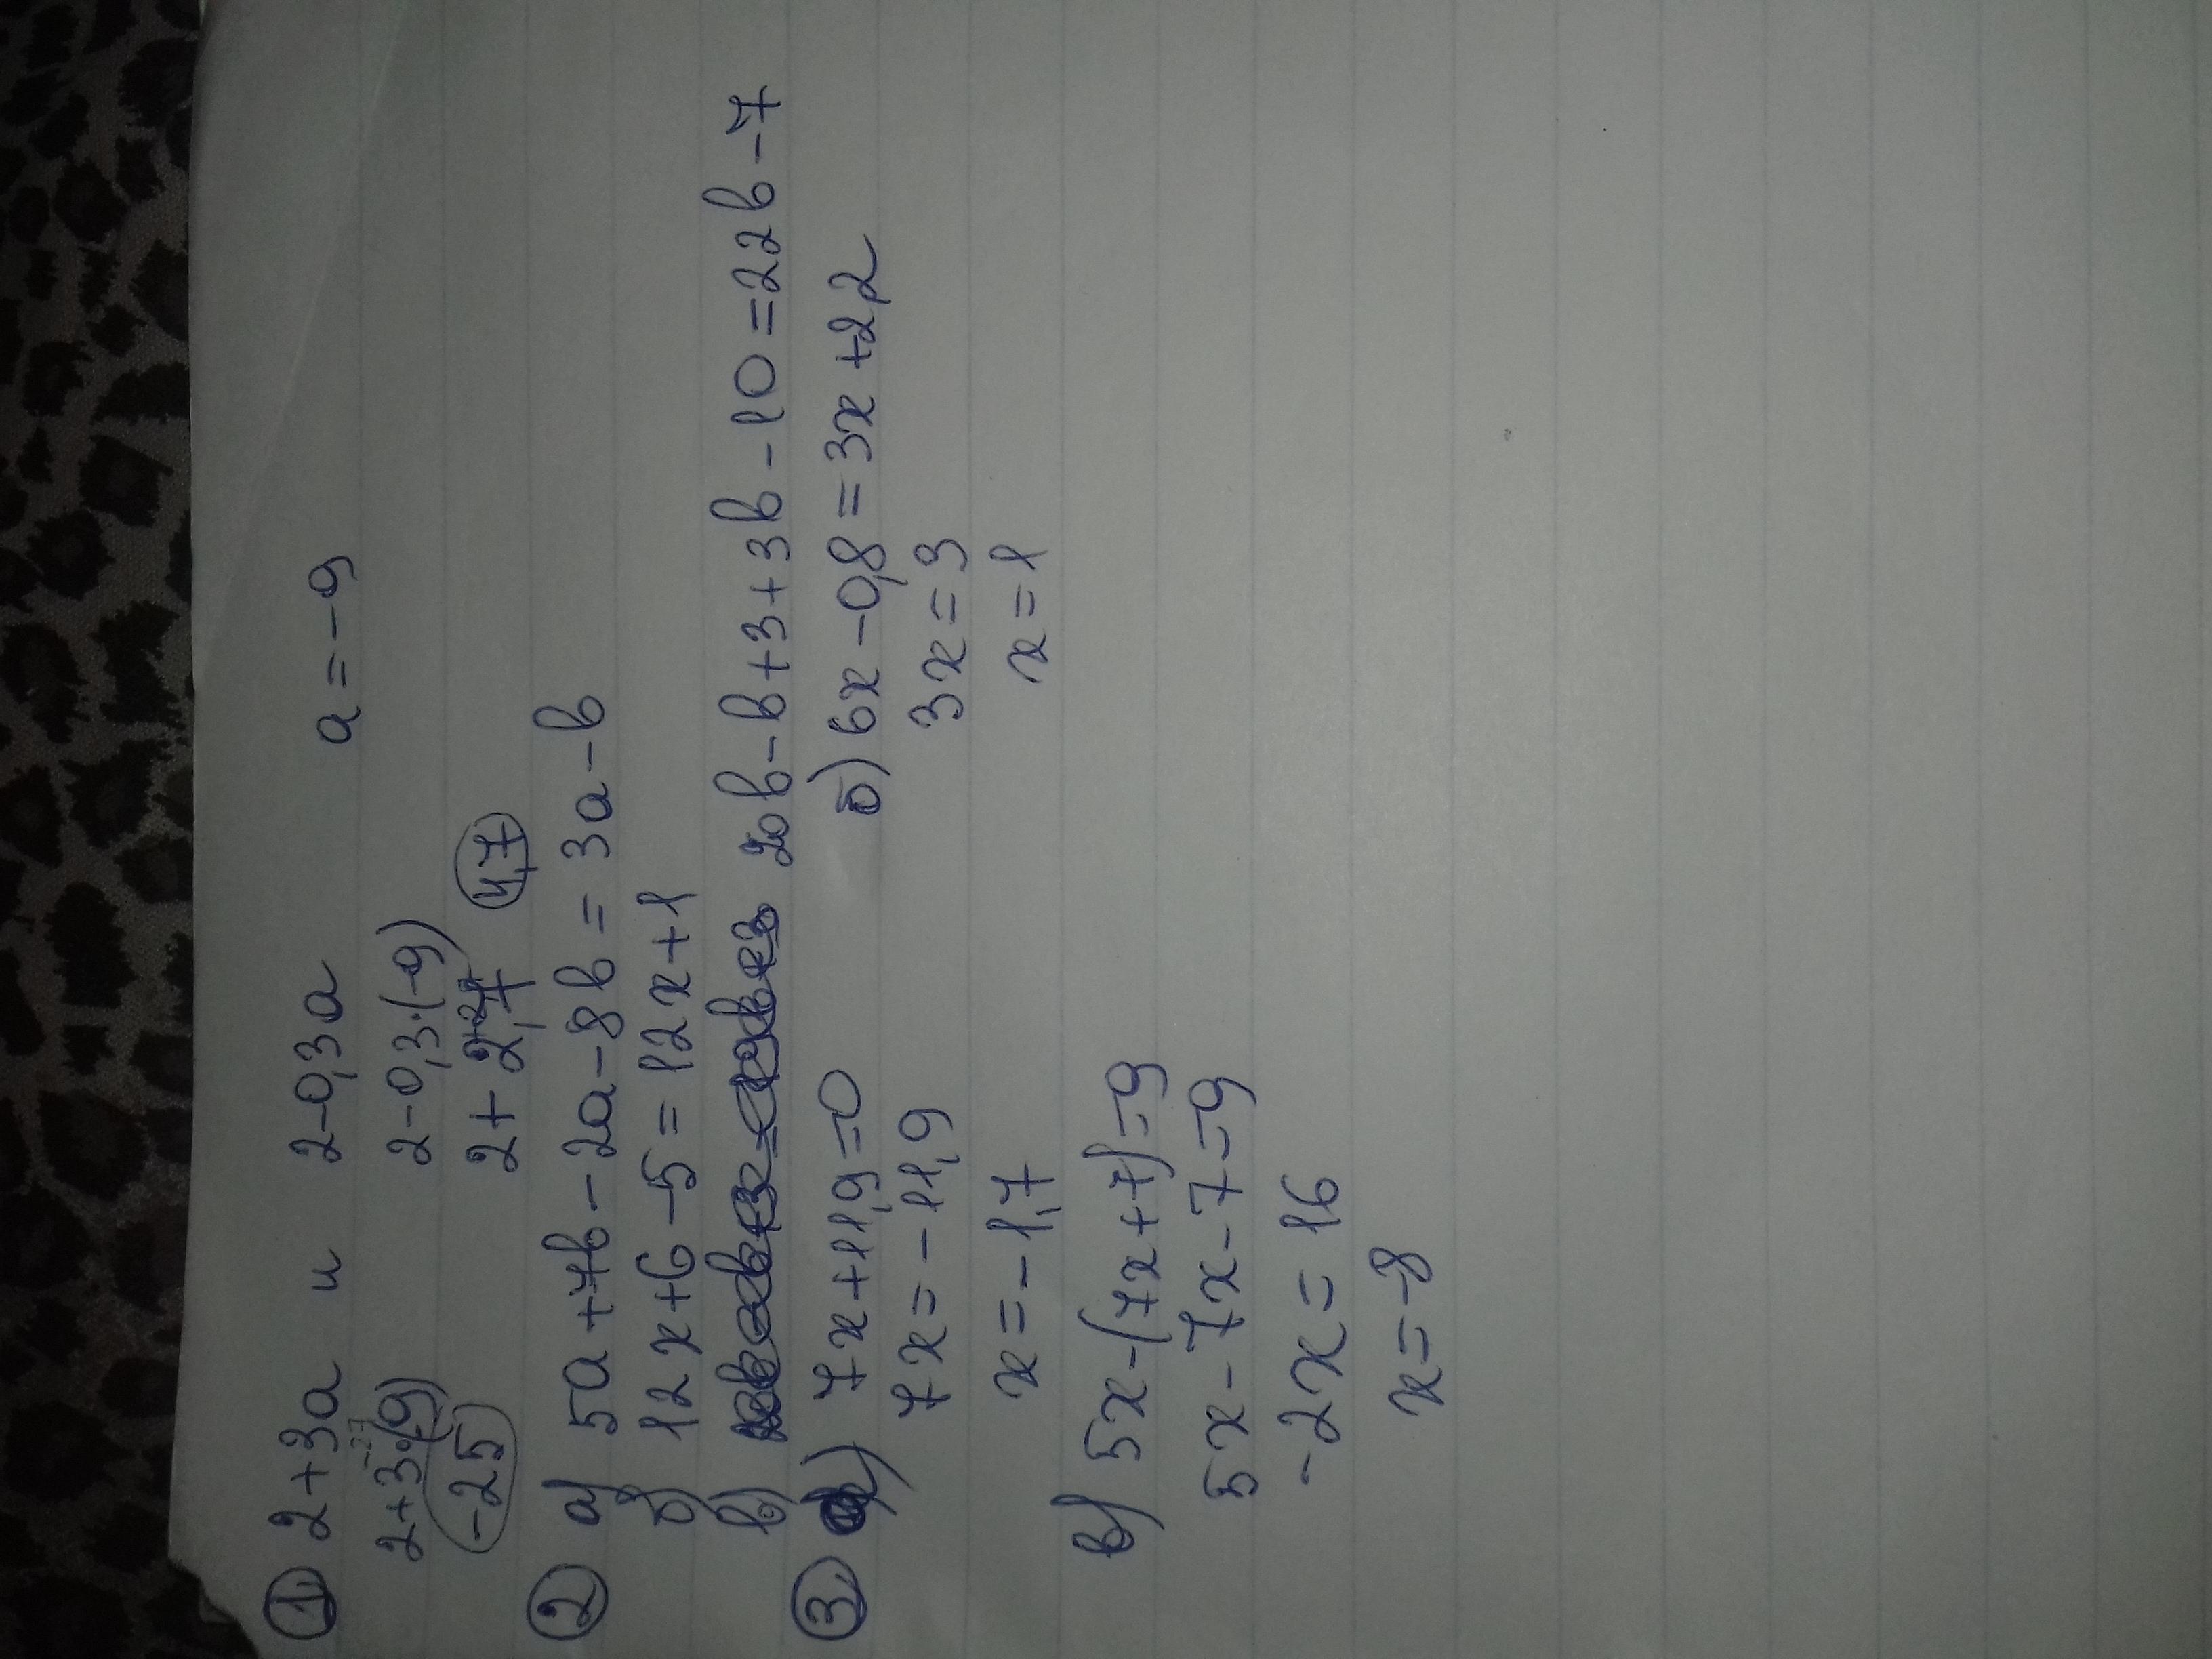 ① 2+3a и 2-0,3a a=-9
2+3·(-9) 2-0,3·(-9)
-25 2+2,7 4,7
② а) 5a+7b-2a-8b=3a-b
б) 12x+6-5=12x+1
в) 20b-b+3+3b-10=22b-7
③ а) 7x+11,9=0 б) 6x-0,8=3x+2,2
7x=-11,9 3x=3
x=-1,7 x=1
в) 5x-(7x+7)=9
5x-7x-7=9
-2x=16
x=-8